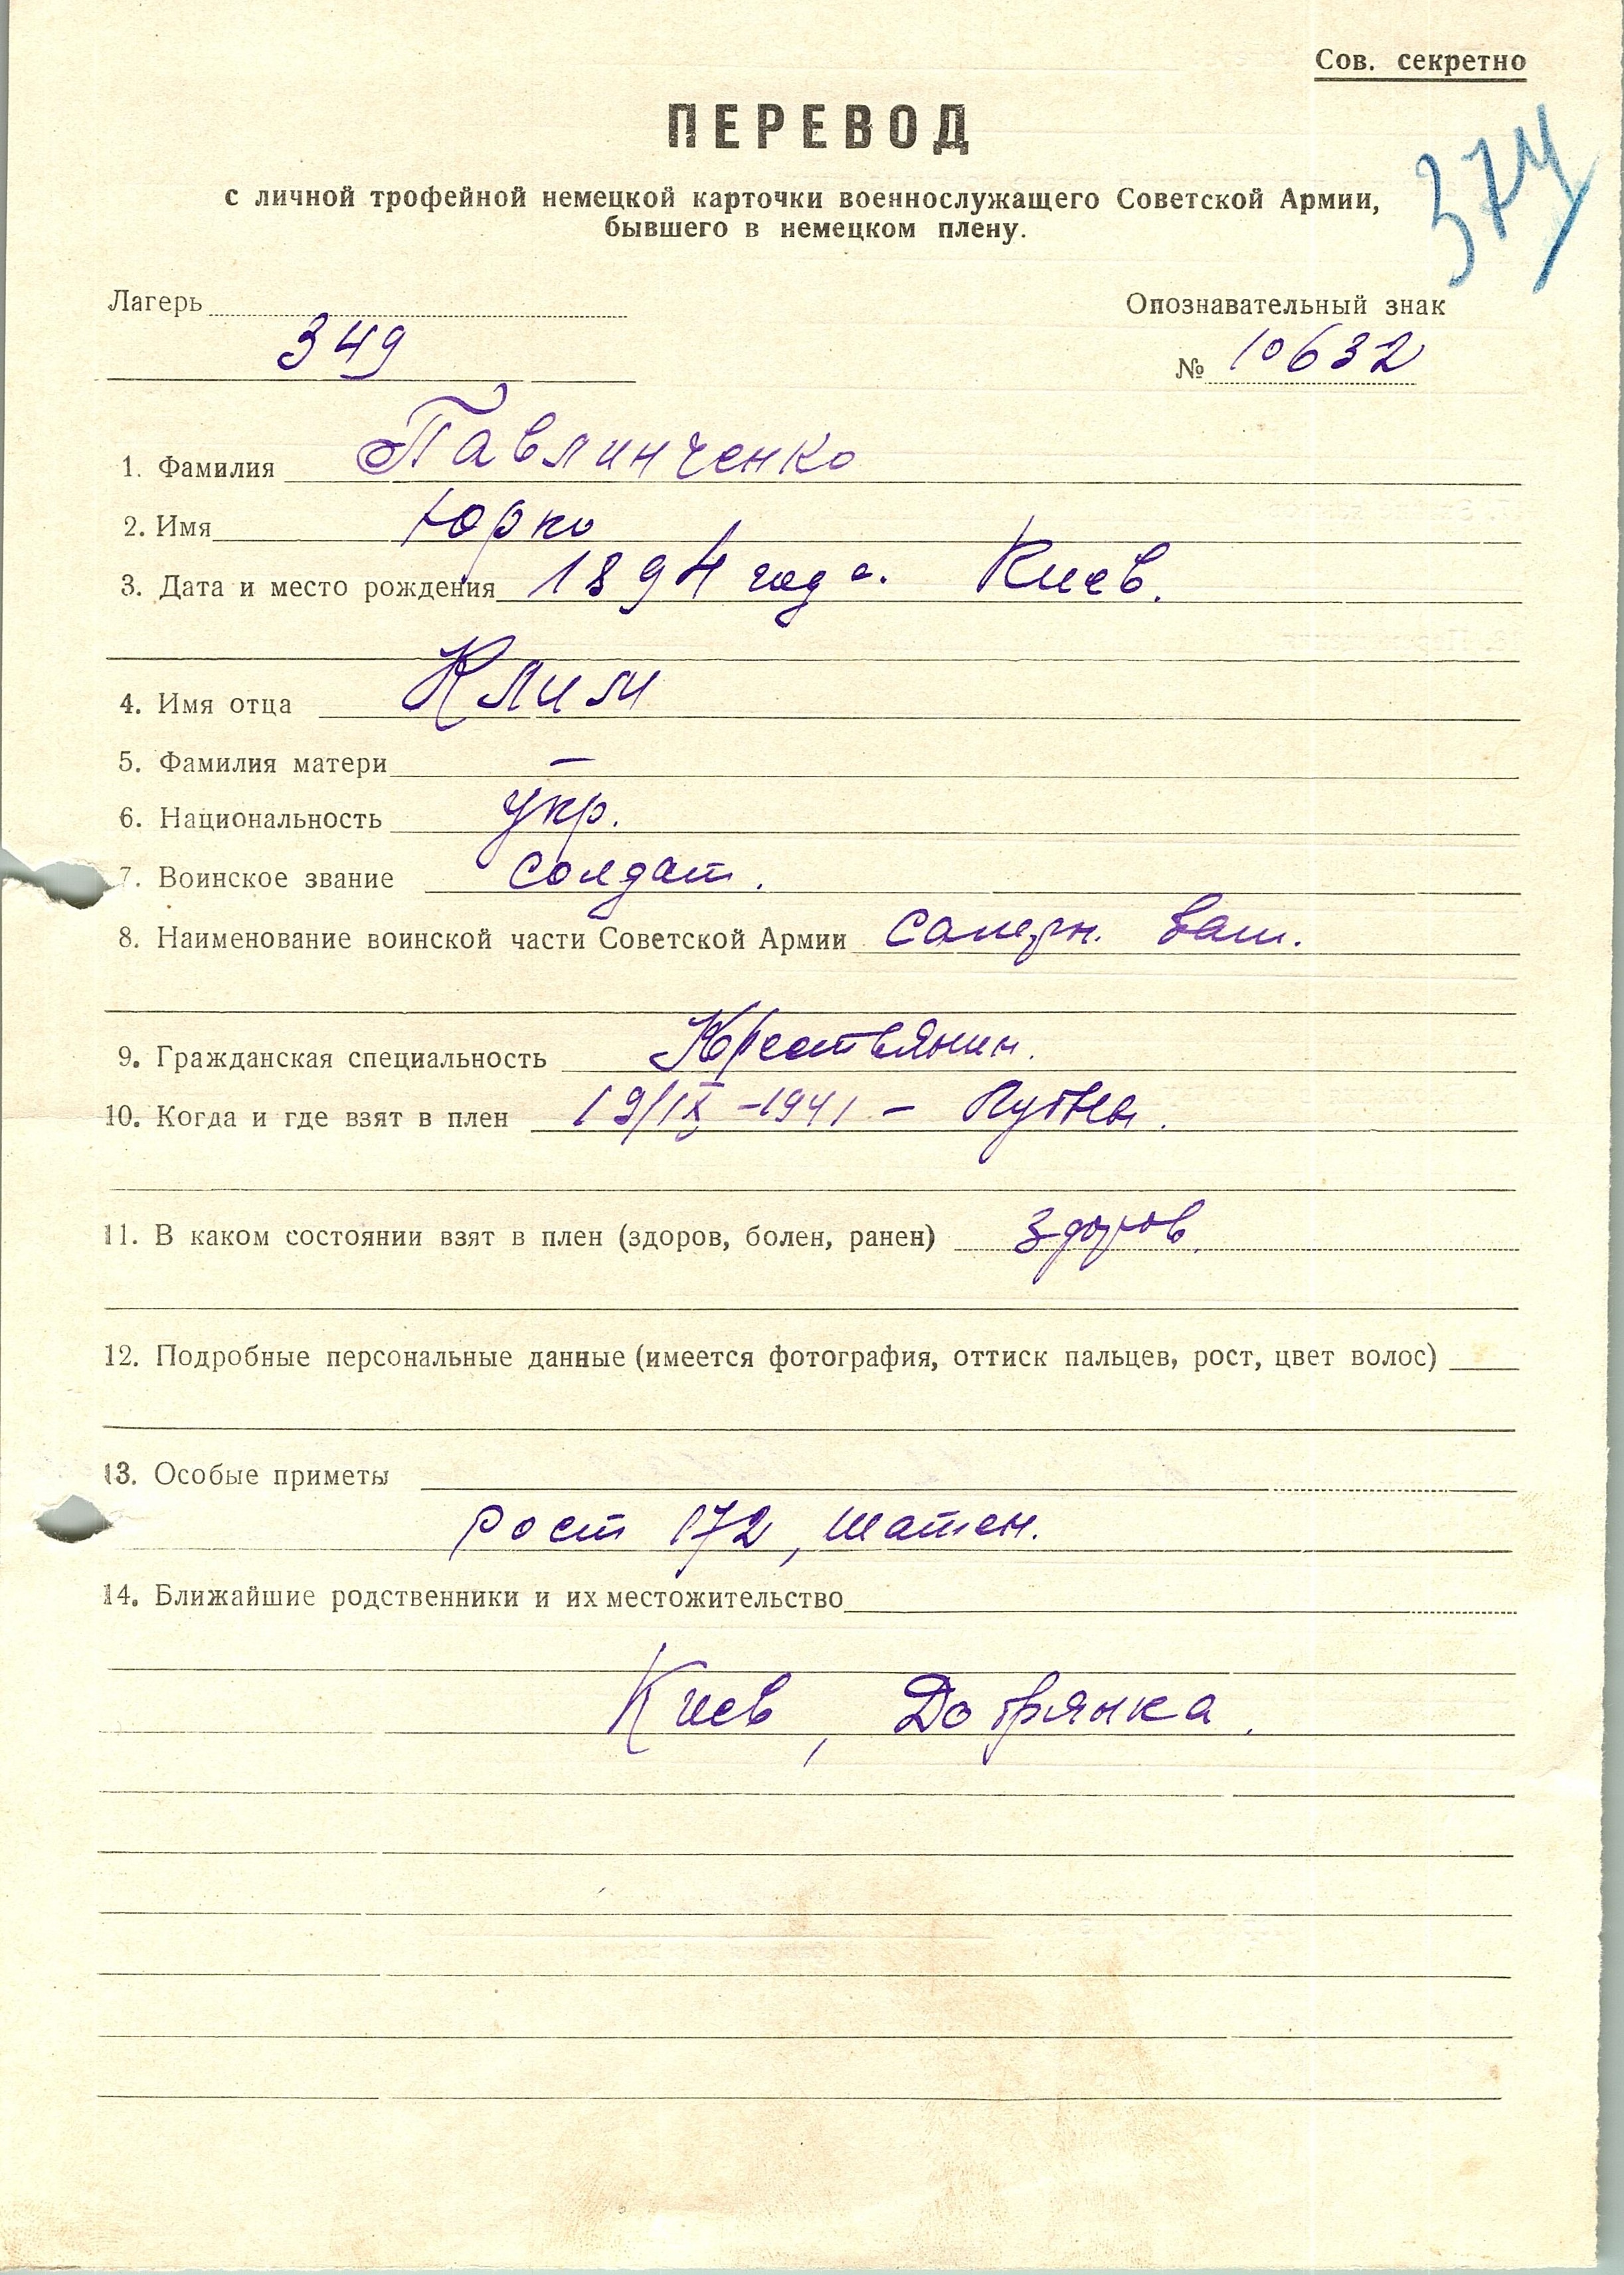 Сов. секретно
ПЕРЕВОД
374
с личной трофейной немецкой карточки военнослужащего Советской Армии,
бывшего в немецком плену.
Лагерь
Опознавательный знак
349
№ 10632
1. Фамилия Павлинченко
2. Имя Юрко
3. Дата и место рождения 1894 года. Киев.
4. Имя отца Клим
5. Фамилия матери —
6. Национальность укр.
7. Воинское звание солдат.
8. Наименование воинской части Советской Армии саперн. бат.
9. Гражданская специальность Крестьянин.
10. Когда и где взят в плен 19/IX -1941 -
11. В каком состоянии взят в плен (здоров, болен, ранен) здоров.
12. Подробные персональные данные (имеется фотография, оттиск пальцев, рост, цвет волос)
13. Особые приметы
рост 172, шатен.
14. Ближайшие родственники и их местожительство
Киев,